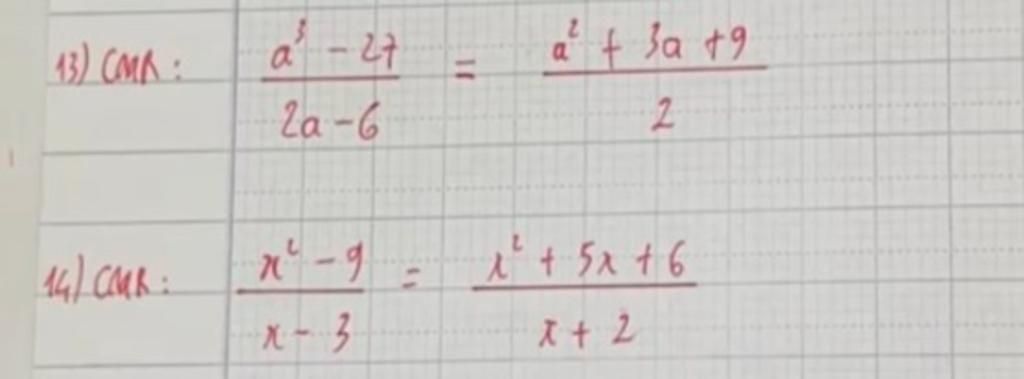 13) CMR: a³ - 27 / 2a - 6 = a² + 3a + 9 / 2
14) CMR: x² - 9 / x - 3 = x² + 5x + 6 / x + 2